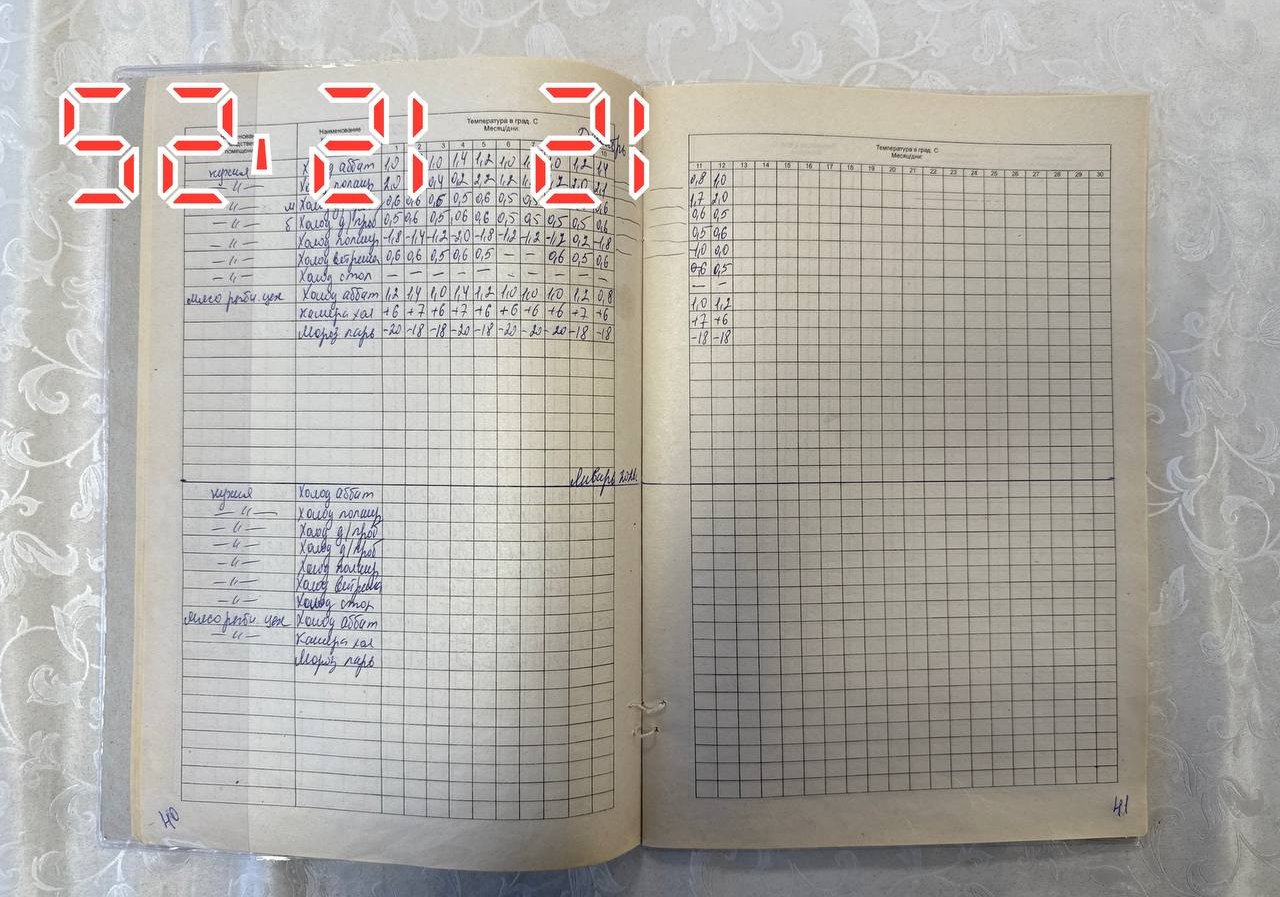 52'21 21
Температура в град. С
Месяц/дни:
Наименование
помещения
1 3 4 5 6 7 8 9 10
кухня Холод аббат 1,0 1,0 1,4 1,2 1,0 1,2 1,4
— " — 2,0 0,4 0,2 2,2 1,2
— " — 0,6 0,6 0,6 0,5 0,6 0,5 0,6
— " — б Холод д/проб 0,5 0,6 0,5 0,6 0,6 0,5 0,5 0,5 0,5 0,6
— " — Холод полаир -1,8 -1,4 -1,2 -2,0 -1,8 -1,2 -1,2 -1,2 0,2 -1,8
— " — Холод 0,6 0,6 0,5 0,6 0,5 — — 0,6 0,5 0,6
— " — Холод стол — — — — — — — — — —
мясо рыбн. цех Холод аббат 1,2 1,4 1,0 1,4 1,2 1,0 1,0 1,0 1,2 0,8
камера хол +6 +7 +6 +7 +6 +6 +6 +6 +7 +6
Мороз ларь -20 -18 -18 -20 -18 -20 -20 -20 -18 -18
Январь
кухня Холод аббат
— " — Холод полаир
— " — Холод д/проб
— " — Холод д/проб
— " — Холод полаир
— " — Холод
— " — Холод стол
мясо рыбн. цех Холод аббат
— " — камера хол
Мороз ларь
40
Температура в град. С
Месяц/дни:
11 12 13 14 15 16 17 18 19 20 21 22 23 24 25 26 27 28 29 30
0,8 1,0
1,7 2,0
0,6 0,5
0,5 0,6
-1,0 0,0
0,6 0,5
— —
1,0 1,2
+7 +6
-18 -18
41